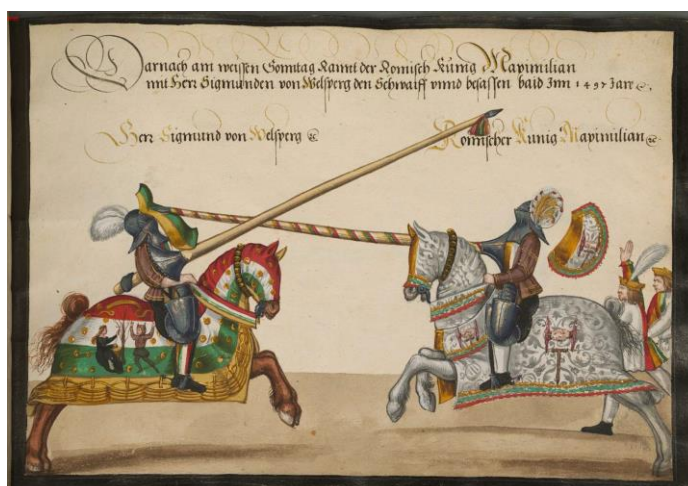 Darnach am weissen Sonntag Rannt der Romisch Kunig Maximilian
mit Herr Sigmunden von Welsperg den Schwaiff vnnd besassen baid Inn 1497 Jare &.
Herr Sigmund von Welsperg &
Romischer Kunig Maximilian &